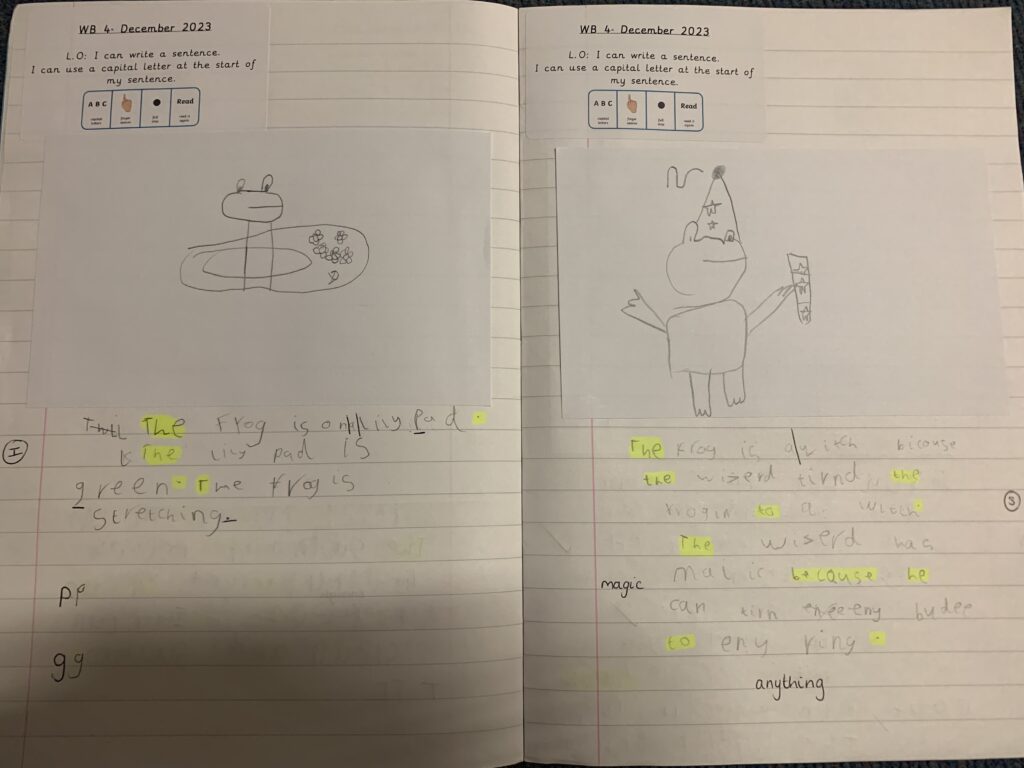 WB 4- December 2023
L.O: I can write a sentence.
I can use a capital letter at the start of
my sentence.
A B C Read
capital letters finger spaces full stop read it again
The Frog is on liy pad.
I
The liy pad is
green. The frog is
stretching.
pp
gg
WB 4- December 2023
L.O: I can write a sentence.
I can use a capital letter at the start of
my sentence.
A B C Read
capital letters finger spaces full stop read it again
The frog is a witch bicouse
the wizerd tirnd the
to a witch.
S
The wiserd has
magic
because he
can tirn eny budee
to eny ring.
anything